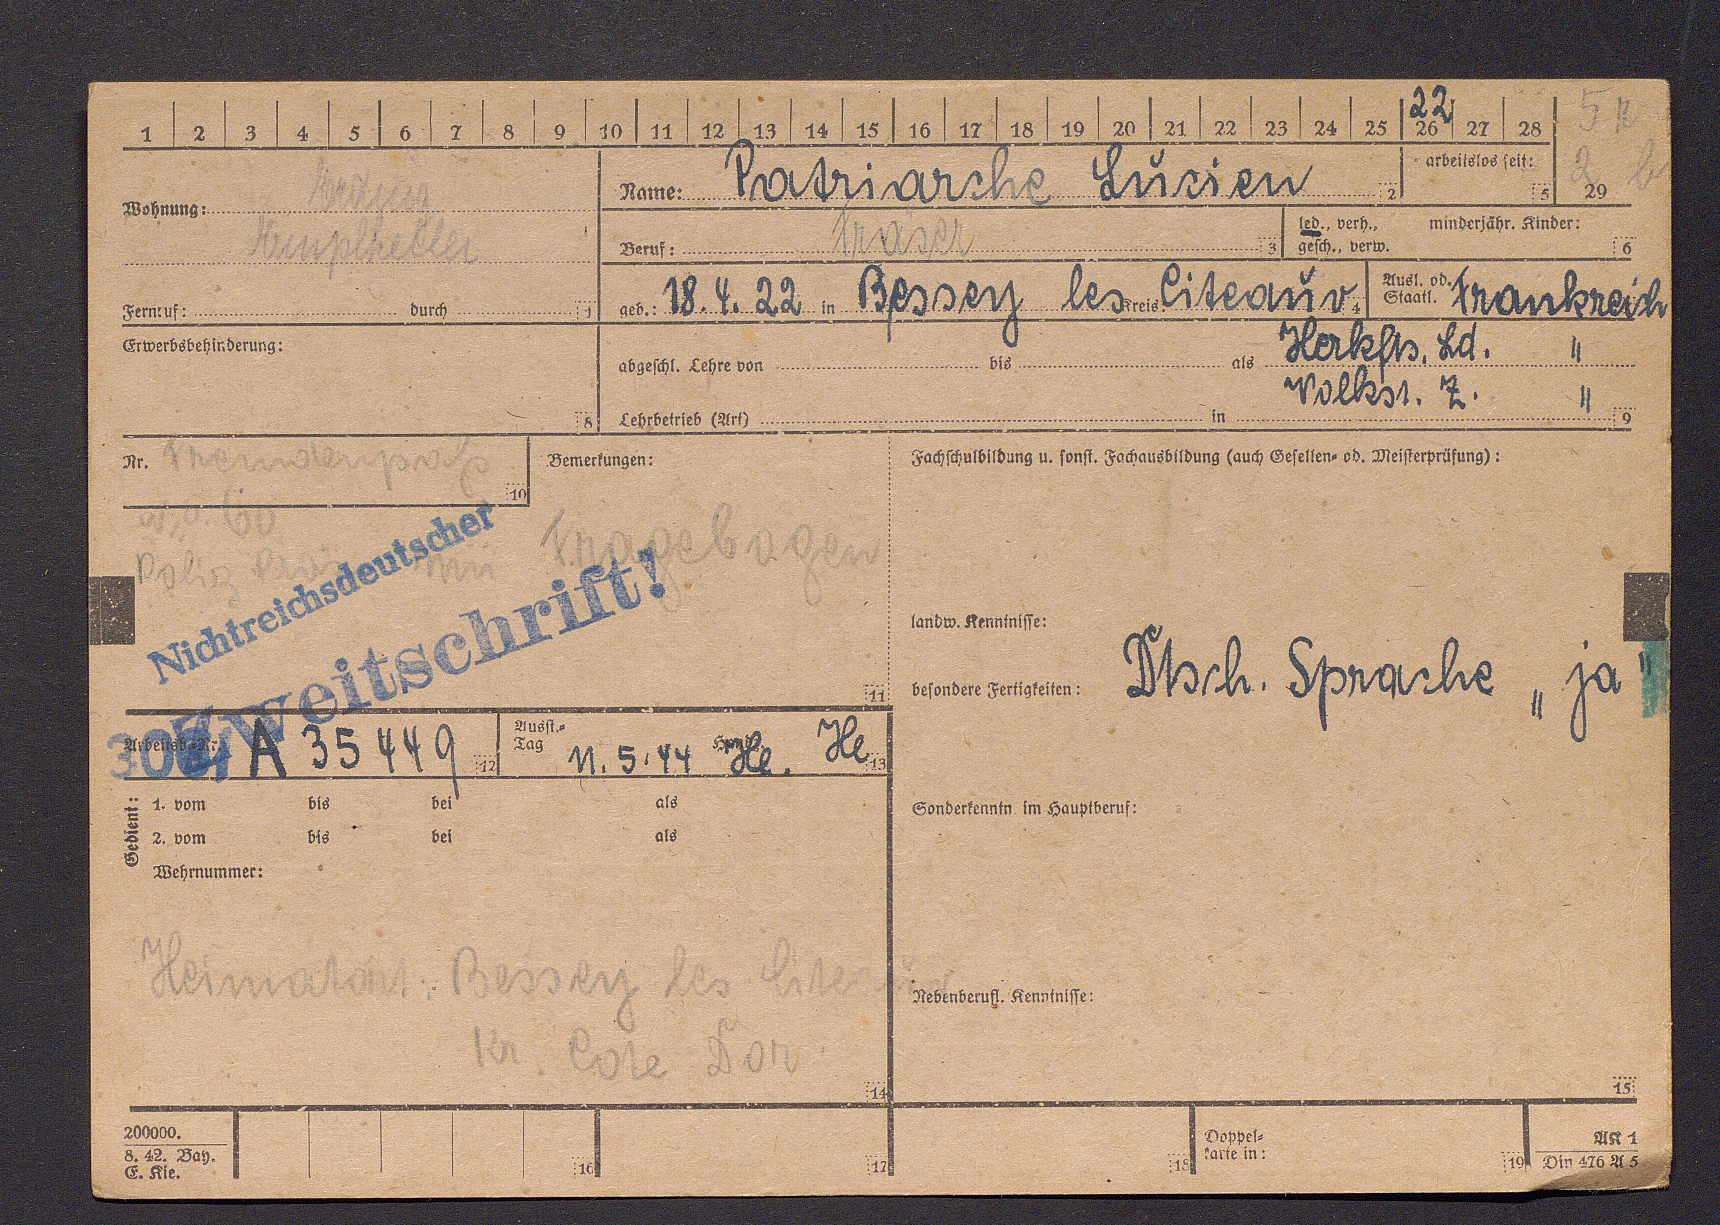 22
1 2 3 4 5 6 7 8 9 10 11 12 13 14 15 16 17 18 19 20 21 22 23 24 25 26 27 28
29
Wohnung:
Name: Patriarche Lucien 2
arbeitslos seit: 5
Beruf: Fräser 3
led., verh., minderjähr. Kinder:
gesch., verw. 6
Fernruf: durch 1
geb.: 18.4.22 in Bessey les Kreis: Citeaux 4
Ausl. od. Staatl. Frankreich
Erwerbsbehinderung: 8
Herkfts. Ld. "
abgeschl. Lehre von bis als
Volkst. Z. "
Lehrbetrieb (Art) in 9
Nr. Fremdenpass 10
Bemerkungen:
Fragebogen
Nichtreichsdeutscher
Zweitschrift!
11
Fachschulbildung u. sonst. Fachausbildung (auch Gesellen- od. Meisterprüfung):
landw. Kenntnisse:
besondere Fertigkeiten: Dtsch. Sprache „ ja "
Arbeitsb.-Nr. A 35449 12
Ausst.-Tag 11.5.44 He. He 13
Gedient:
1. vom bis bei als
2. vom bis bei als
Wehrnummer:
Sonderkenntn. im Hauptberuf:
Heimatort: Bessey les Citeaux
Kr. Cote Dor
14
Nebenberufl. Kenntnisse:
15
200000.
8. 42. Bay.
E. Kle.
16
17
18
Doppel-
karte in: 19
AK 1
Din 476 A 5